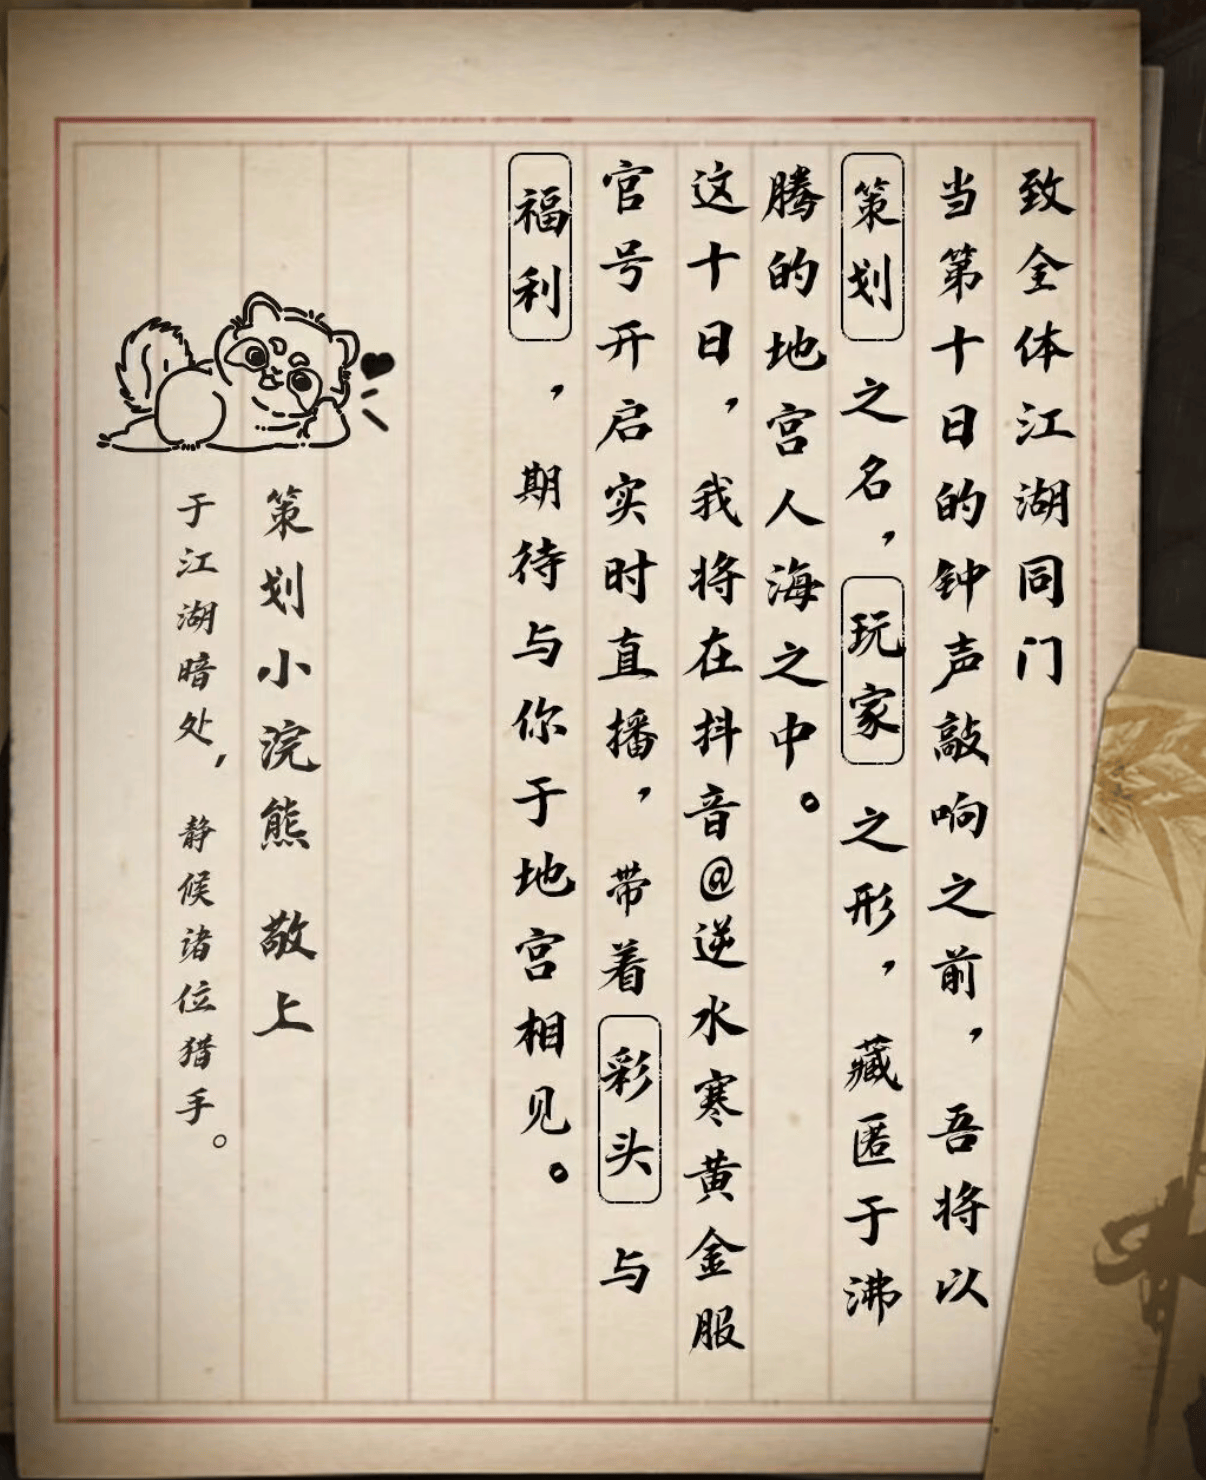 致全体江湖同门
当第十日的钟声敲响之前，吾将以
策划之名，玩家之形，藏匿于沸
腾的地宫人海之中。
这十日，我将在抖音@逆水寒黄金服
官号开启实时直播，带着彩头与
福利，期待与你于地宫相见。
策划小浣熊 敬上
于江湖暗处，静候诸位猎手。